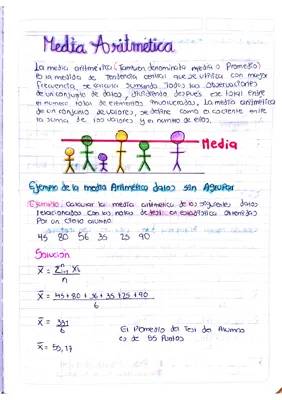 Media Aritmetica
La media aritmetica (También denominata media o Promedio)
es la medida de Tendencia central que se utiliza con mayor
frecuencia, se calcula sumando todas las observaciones
de un conjunto de datos, dividiendo después ese total entre
el numero total de elementos involucrados, La media aritmetica
de un conjunto de valores, se define como el cociente entre
la suma de los valores y el numero de ellos.
Media
Ejemplo de la media Aritmética datos sin Agrupar
Ejemplo: calcular la media aritmetica de los siguientes datos
relacionados con las notas de test en estadistica obtenidas
Por un cierto alumno
45 80 56 35 25 90
Solución
X̄ = Σⁿᵢ₌₁ Xi
n
X̄ = 45+80+56+35+25+90
6
X̄ = 331
6
El Promedio del Test del Alumno
es de 55 Puntos
X̄ = 55,17